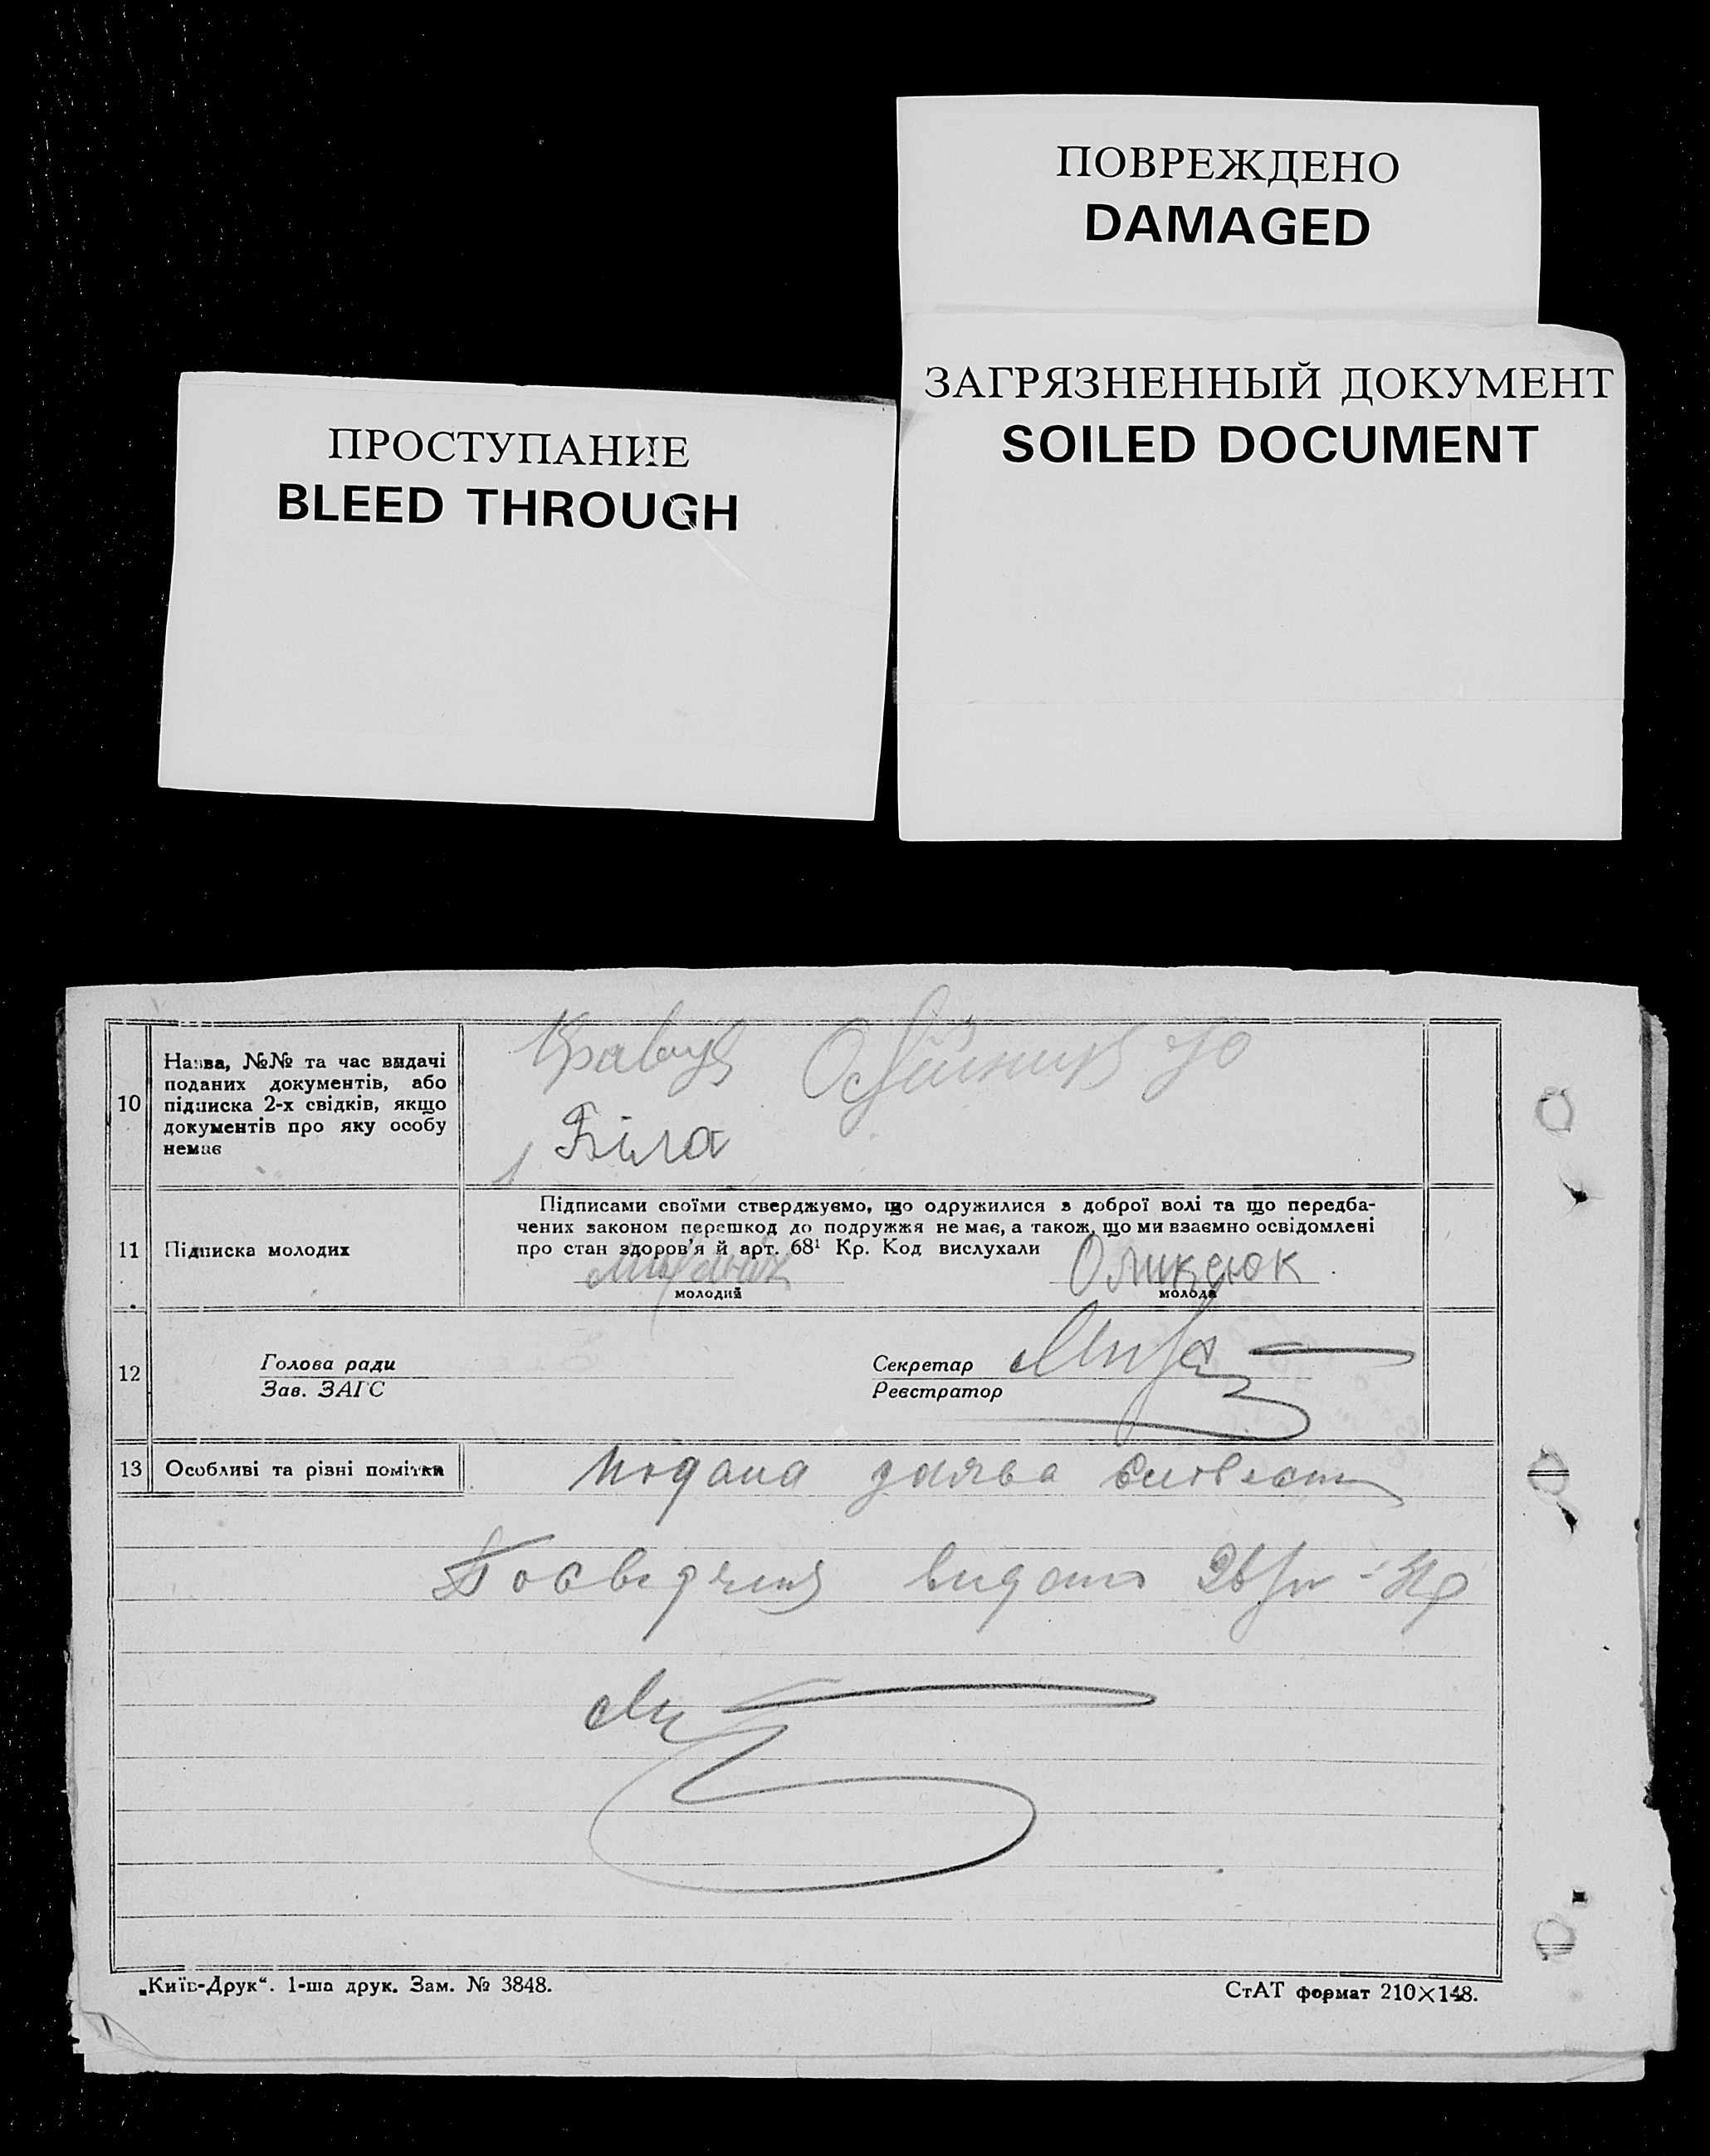 ПОВРЕЖДЕНО
DAMAGED
ЗАГРЯЗНЕННЫЙ ДОКУМЕНТ
SOILED DOCUMENT
ПРОСТУПАНИЕ
BLEED THROUGH
10
Назва, №№ та час видачі
поданих документів, або
підписка 2-х свідків, якщо
документів про яку особу
немає
Біла
11
Підписка молодих
Підписами своїми стверджуємо, що одружилися з доброї волі та що передба-
чених законом перешкод до подружжя не має, а також, що ми взаємно освідомлені
про стан здоров'я й арт. 68¹ Кр. Код вислухали
молодий
молода
12
Голова ради
Зав. ЗАГС
Секретар
Реєстратор
13
Особливі та різні помітки
подана заява
видано
„Київ-Друк“. 1-ша друк. Зам. № 3848.
СтАТ формат 210×148.